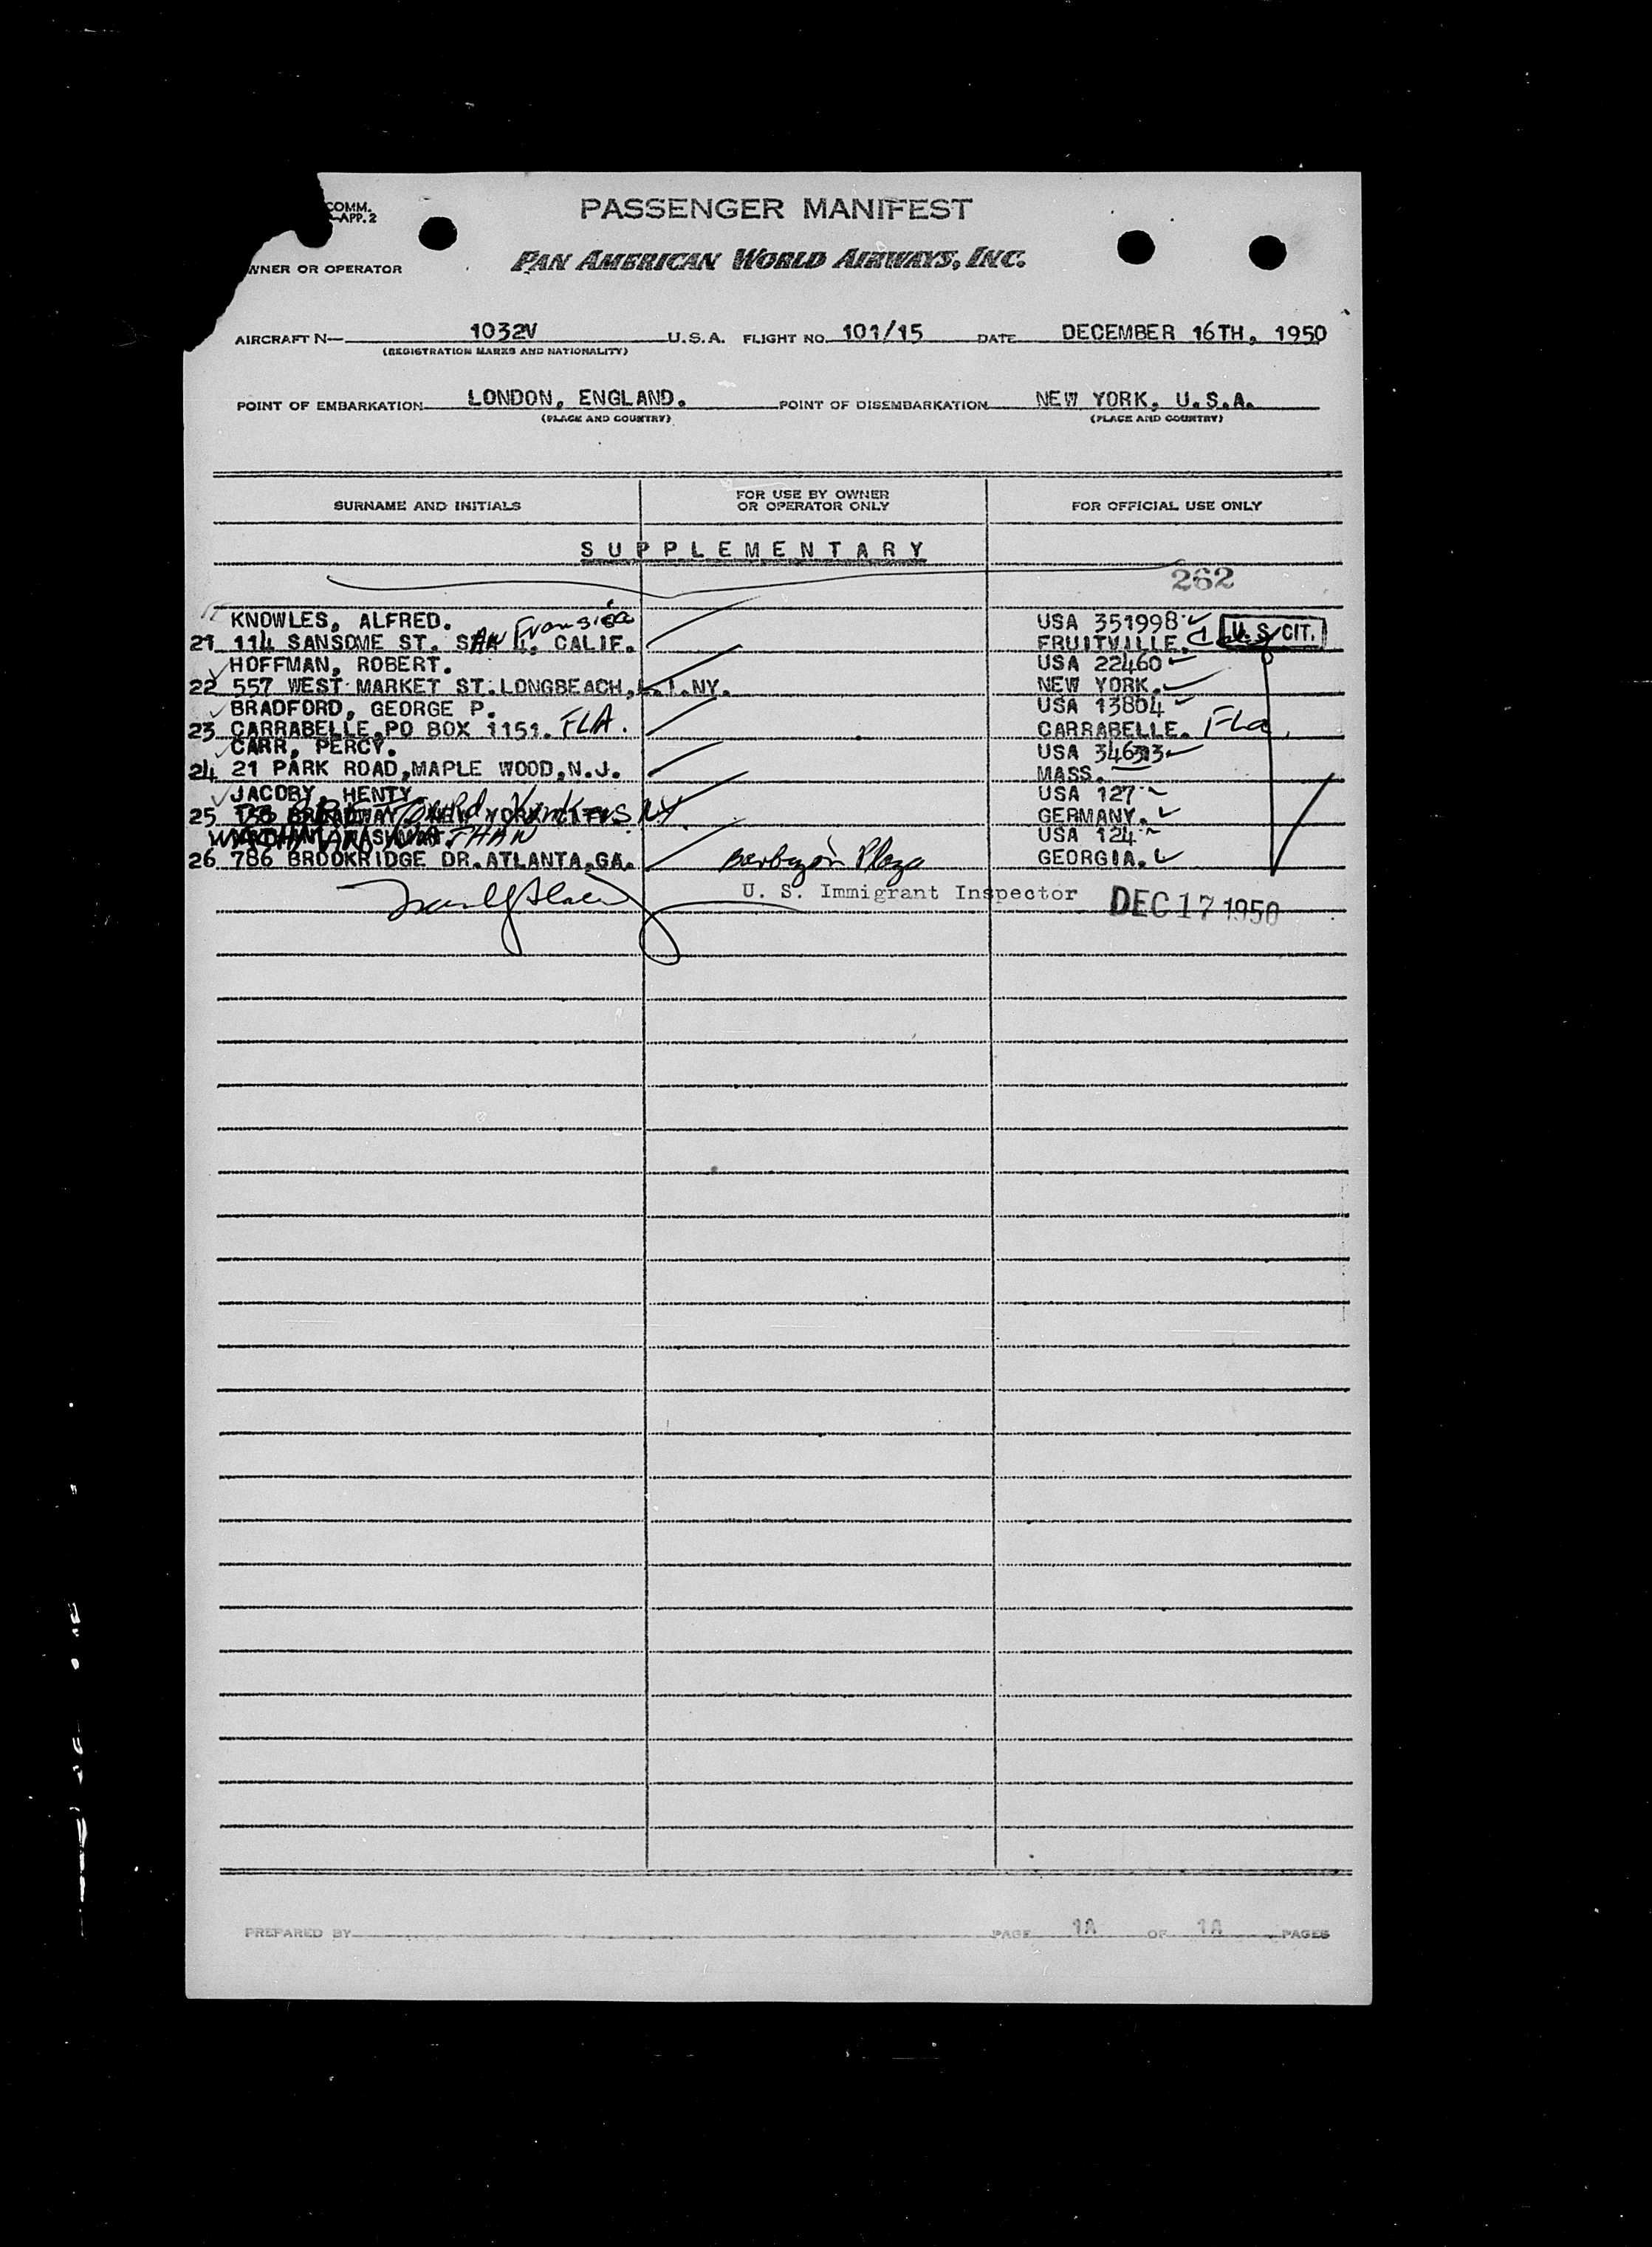 COMM.
APP. 2
PASSENGER MANIFEST
WNER OR OPERATOR
PAN AMERICAN WORLD AIRWAYS, INC.
AIRCRAFT N— 1032V U.S.A. FLIGHT NO. 101/15 DATE DECEMBER 16TH, 1950
(REGISTRATION MARKS AND NATIONALITY)
POINT OF EMBARKATION LONDON, ENGLAND. POINT OF DISEMBARKATION NEW YORK, U.S.A.
(PLACE AND COUNTRY) (PLACE AND COUNTRY)
SURNAME AND INITIALS FOR USE BY OWNER OR OPERATOR ONLY FOR OFFICIAL USE ONLY
SUPPLEMENTARY
262
KNOWLES, ALFRED. USA 351998
21 114 SANSOME ST. SAN Fransisco 4, CALIF. FRUITVILLE. U.S. CIT.
HOFFMAN, ROBERT. USA 22460
22 557 WEST MARKET ST.LONGBEACH,L.I.NY. NEW YORK.
BRADFORD, GEORGE P. USA 13804
23 CARRABELLE,PO BOX 1151. FLA. CARRABELLE. Fla.
CARR, PERCY. USA
24 21 PARK ROAD,MAPLE WOOD,N.J. MASS.
JACOBY, HENTY. USA 127
25 BROADWAY, NEW YORK CITY. NY GERMANY.
NATHAN USA 124
26 786 BROOKRIDGE DR.ATLANTA,GA. Barbizon Plaza GEORGIA.
U. S. Immigrant Inspector DEC 17 1950
PREPARED BY PAGE 1A OF 1A PAGES